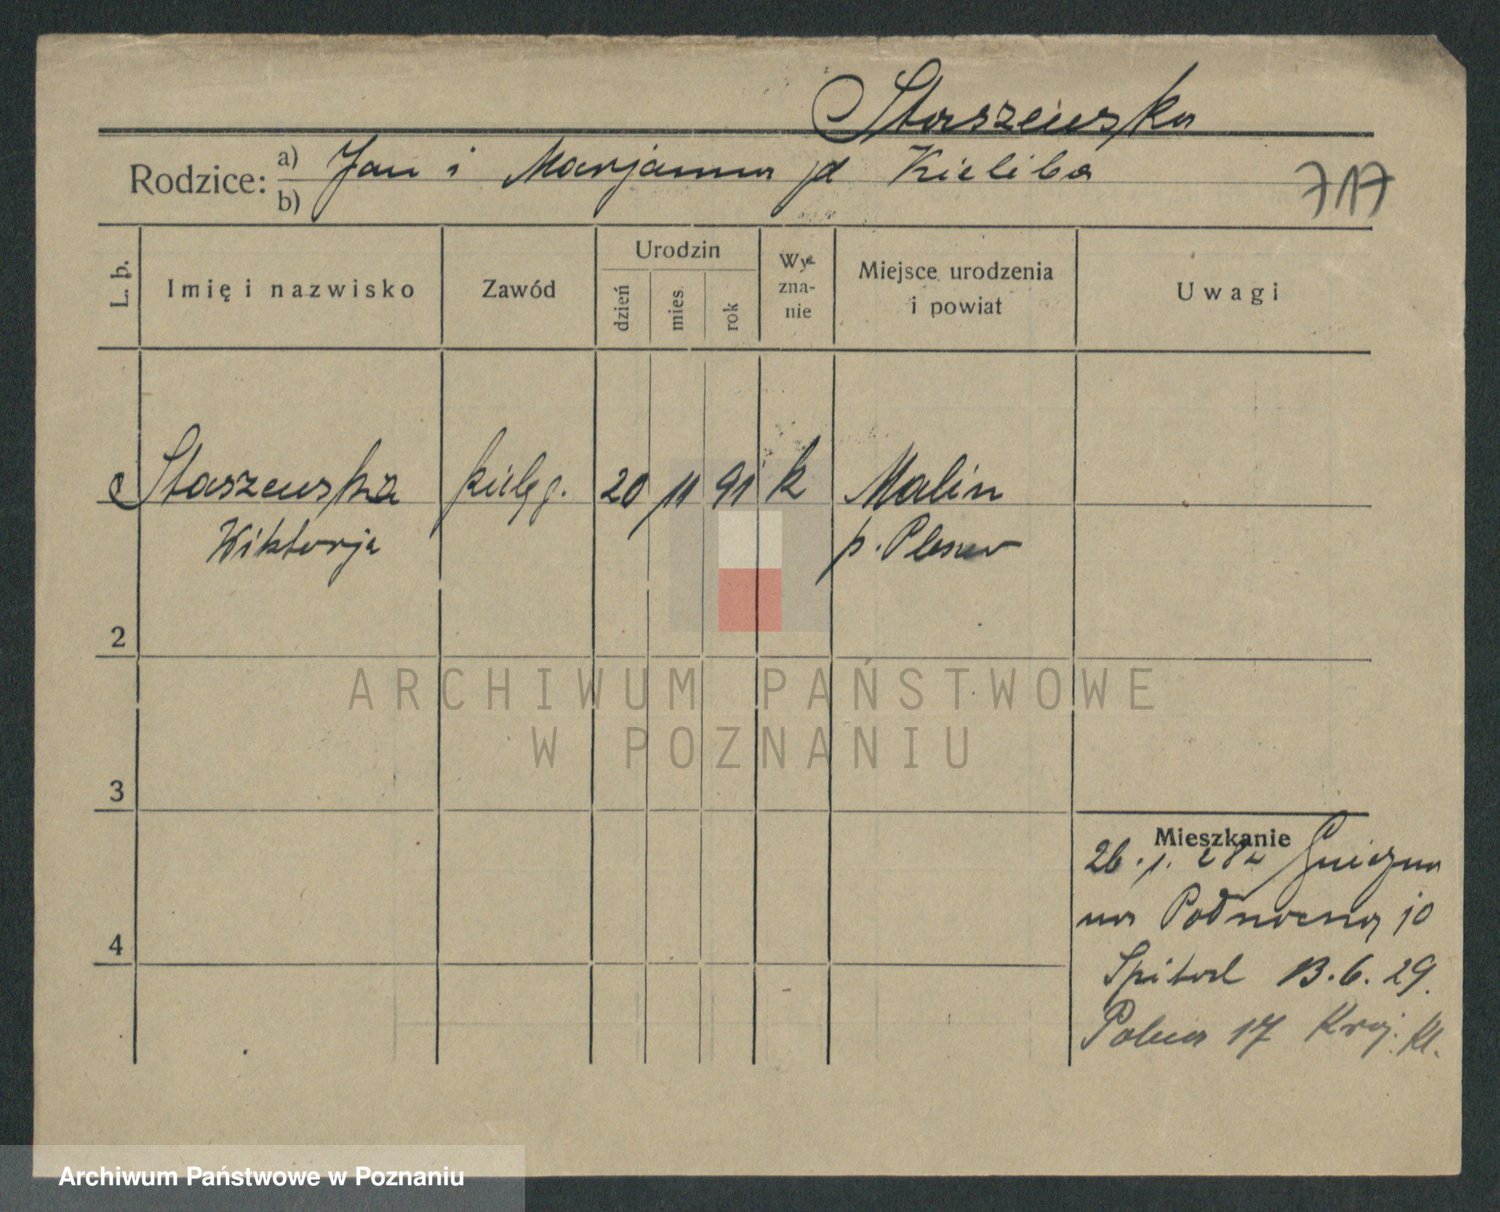 Staszewska
Rodzice: a) Jan i Marjanna
b)
Kieliba
717
L. p.
Imię i nazwisko
Zawód
Urodzin
dzień
mies.
rok
Wy-
zna-
nie
Miejsce urodzenia
i powiat
Uwagi
Staszewska pielęg. 20 11 91 k Malin
Wiktorja p. Plesew
2
3
4
Mieszkanie
26. 1. Gniezna
na 10
Spital 13. 6. 29.
Polna 17
ARCHIWUM PAŃSTWOWE
W POZNANIU
Archiwum Państwowe w Poznaniu